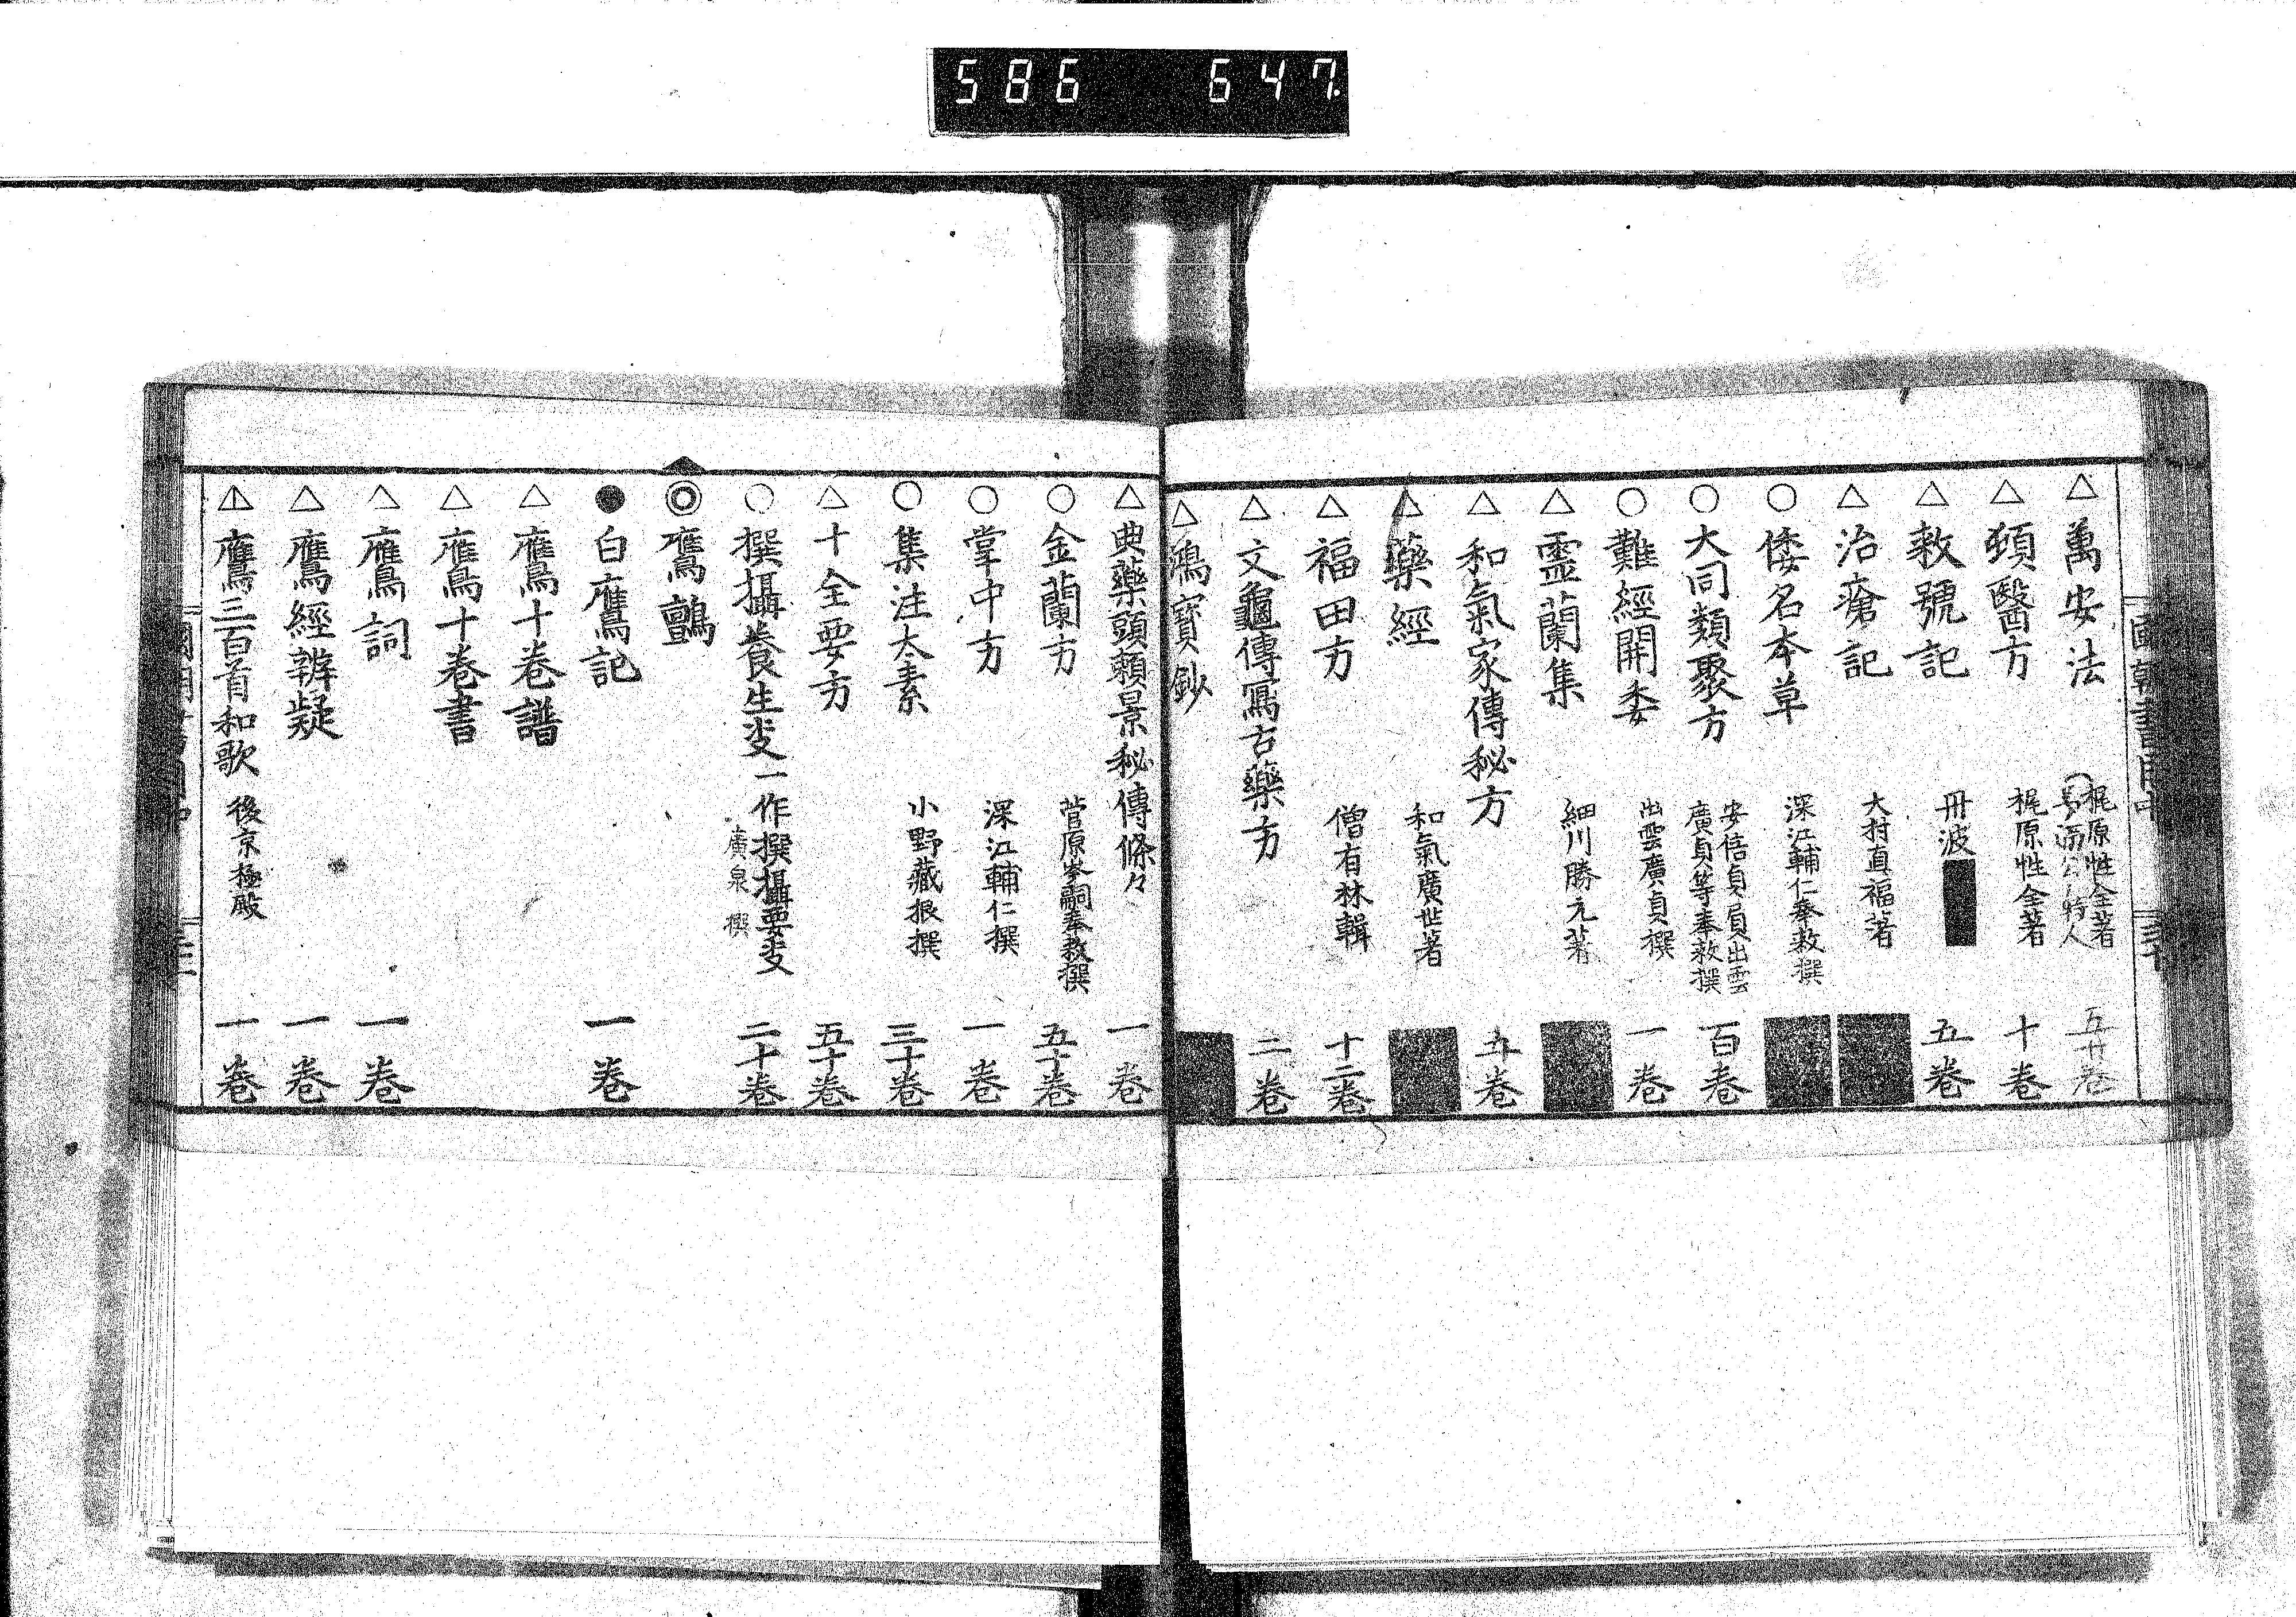 586 647.
△萬安法 梶原性全著 五十卷
△頓醫方 梶原性全著 十卷
△救號記 丹波 五卷
△治瘡記 大村直福著
○倭名本草 深江輔仁奉敕撰
○大同類聚方 安倍貞員出雲廣貞等奉敕撰 百卷
○難經開委 出雲廣貞撰 一卷
△靈蘭集 細川勝元著
△和氣家傳秘方 五卷
△藥經 和氣廣世著
△福田方 僧有林輯 十二卷
△文龜傳寫古藥方 二卷
△鴻寶鈔
△典藥頭賴景秘傳條々 一卷
○金蘭方 菅原岑嗣奉敕撰 五十卷
○掌中方 深江輔仁撰 一卷
○集注太素 小野藏根撰 三十卷
△十全要方 五十卷
○撰攝養生㕝 一作撰攝要㕝 廣泉 撰 二十卷
◎鷹鸇
●白鷹記 一卷
△鷹十卷譜
△鷹十卷書
△鷹詞 一卷
△鷹經辨疑 一卷
△鷹三百首和歌 後京極殿 一卷